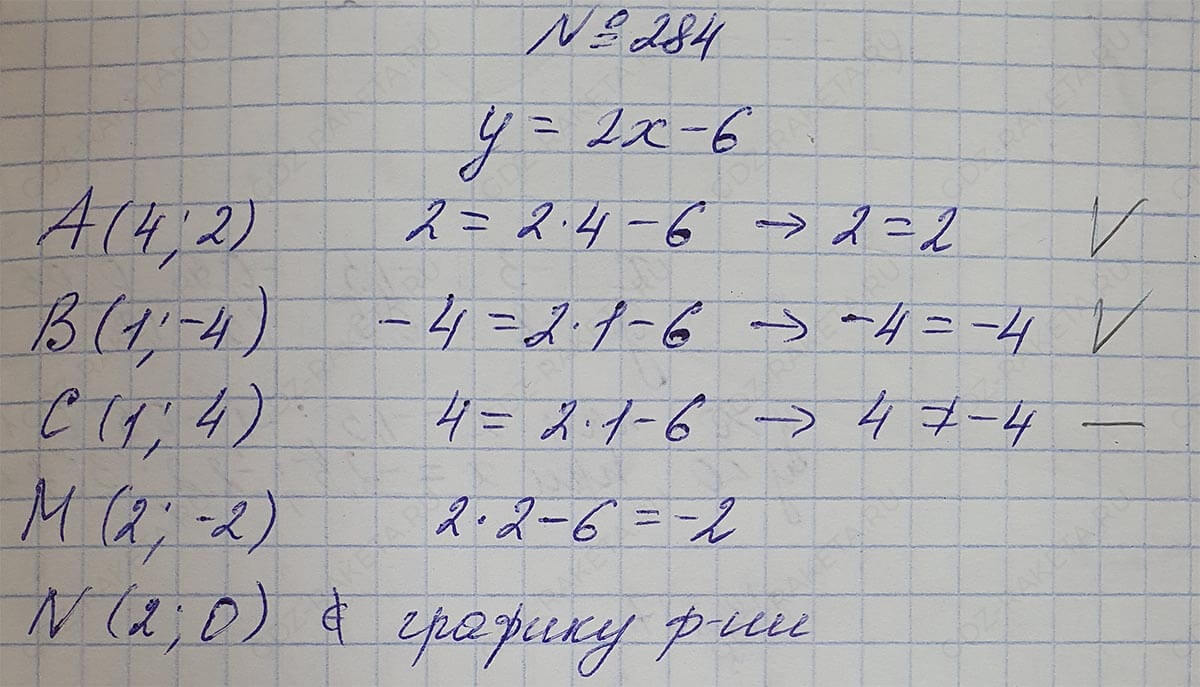 № 284
y = 2x - 6
A (4; 2) 2 = 2·4 - 6 → 2 = 2 √
B (1; -4) -4 = 2·1 - 6 → -4 = -4 √
C (1; 4) 4 = 2·1 - 6 → 4 ≠ -4 —
M (2; -2) 2·2 - 6 = -2
N (2; 0) ∉ графику ф-ии